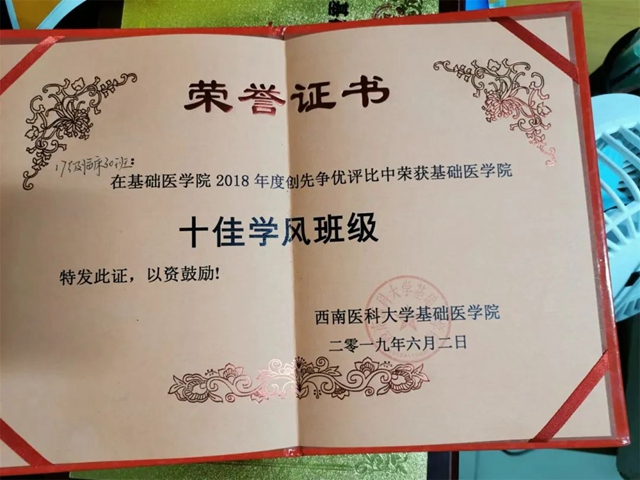 荣誉证书
17级临床30班:
在基础医学院 2018 年度创先争优评比中荣获基础医学院
十佳学风班级
特发此证，以资鼓励!
西南医科大学基础医学院
二零一九年六月二日